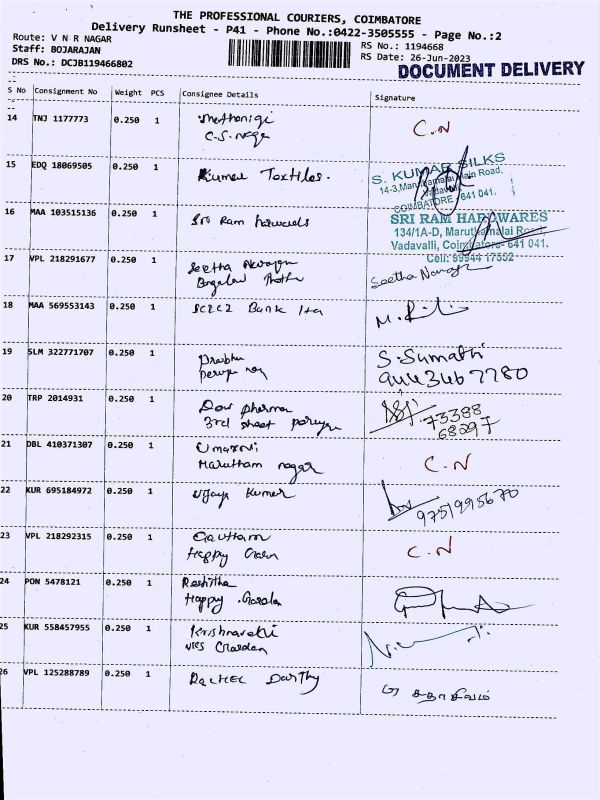 THE PROFESSIONAL COURIERS, COIMBATORE
Delivery Runsheet - P41 - Phone No.:0422-3505555 - Page No.:2
Route: V N R NAGAR
RS No.: 1194668
Staff: BOJARAJAN
RS Date: 26-Jun-2023
DRS No.: DCJB119466802
DOCUMENT DELIVERY
S No Consignment No Weight PCS Consignee Details Signature
14 TNJ 1177773 0.250 1
C.S. C.N
15 EDQ 18069505 0.250 1 Kumar Textiles.
S. KUMAR SILKS
14-3, Maruthamalai Main Road,
Vadavalli
COIMBATORE - 641 041.
16 MAA 103515136 0.250 1 Sri Ram
SRI RAM HARDWARES
134/1A-D, Maruthamalai Road,
Vadavalli, Coimbatore- 641 041.
Cell: 99944 17552
17 VPL 218291677 0.250 1 Seetha
Seetha
18 MAA 569553143 0.250 1 Bank
19 SLM 322771707 0.250 1 Prabhu
S. Sumathi
9443467780
20 TRP 2014931 0.250 1 pharma
3rd street
73388
68297
21 DBL 410371307 0.250 1
Marutham nagar C.N
22 KUR 695184972 0.250 1 Vijaya Kumar
9751995670
23 VPL 218292315 0.250 1 Gautham
Happy C.N
24 PON 5478121 0.250 1
Happy Garden
25 KUR 558457955 0.250 1
VRS Garden
26 VPL 125288789 0.250 1 Rachel
சதாசிவம்